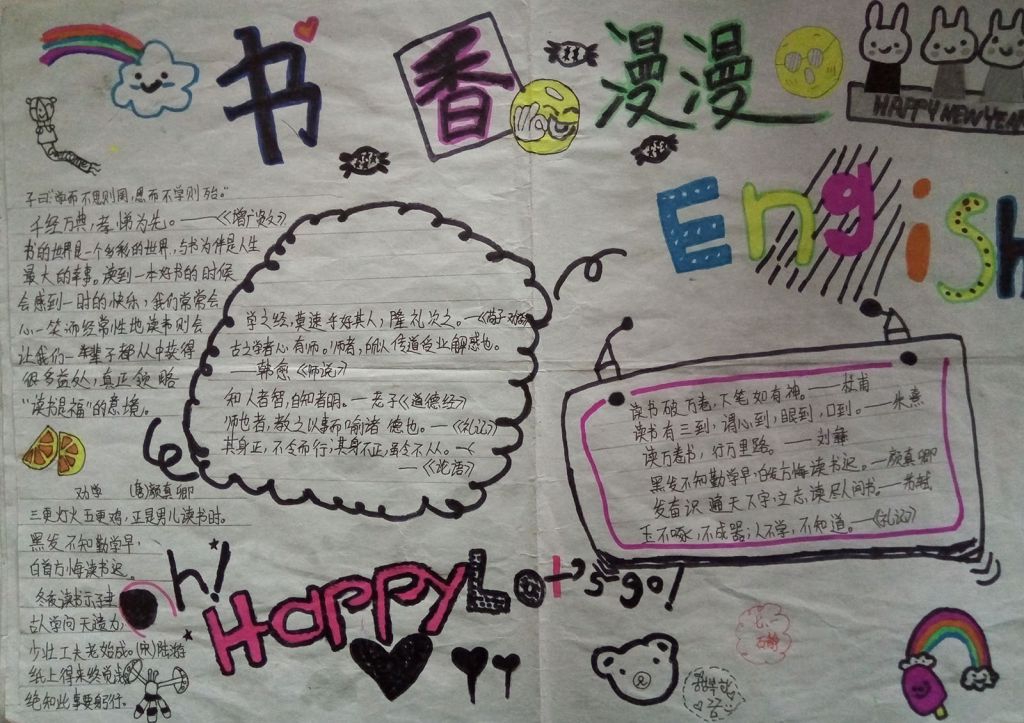 书香漫漫
HAPPY NEW YEA
English
子曰:"学而不思则罔,思而不学则殆。"
千经万典,孝悌为先。——《增广贤文》
书的世界是一个多彩的世界,与书为伴是人生
最大的幸事。读到一本好书的时候
会感到一时的快乐,我们常常会
心一笑而经常性地读书则会
让我们一辈子都从中获得
很多益处,真正领略
"读书是福"的意境。
学之经,莫速乎好其人,隆礼次之。—《荀子·劝学》
古之学者必有师。师者,所以传道受业解惑也。
——韩愈《师说》
知人者智,自知者明。—老子《道德经》
师也者,教之以事而喻诸德也。—《礼记》
其身正,不令而行;其身不正,虽令不从。—
—《论语》
读书破万卷,下笔如有神。——杜甫
读书有三到,谓心到,眼到,口到。—朱熹
读万卷书,行万里路。——刘彝
黑发不知勤学早,白首方悔读书迟。—颜真卿
发奋识遍天下字,立志读尽人间书。—苏轼
玉不啄,不成器;人不学,不知道。—《礼记》
劝学 (唐)颜真卿
三更灯火五更鸡,正是男儿读书时。
黑发不知勤学早,
白首方悔读书迟。
冬夜读书示子聿
古人学问无遗力,
少壮工夫老始成。(宋)陆游
纸上得来终觉浅
绝知此事要躬行。
h!
Happy Let's go!